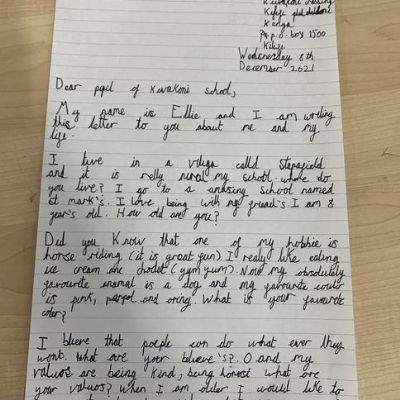 Kenya
P.O. box 1500
Wednesday 8th
December 2021
Dear pupil of Kwakoni school,
My name is Ellie and I am writing
this letter to you about me and my
life.
I live in a village called Stapafield
and it is relly rural my school. where do
you live? I go to a amasing school named
St mark's. I love being with my freands. I am 8
year's old. How old are you?
Did you Know that one of my hobbie is
horse riding (it is great fun) I realy like eating
ice cream and (yum yum). Now my absolutely
favourite animal is a dog and my favourite
is pink, and What is your favourite
color?
I believe that poeple can do what ever they
want. what are your believe's? O and my
values are being kind, being honest what are
your values? When I am older I would like to